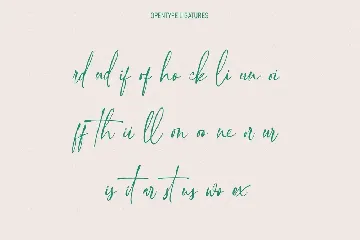 OPENTYPE LIGATURES
rd nd if of ho ck li un oi
ff th ii ll on oo ne or ur
is it ar st us wo ex